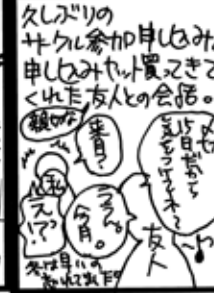 久しぶりの
サークル参加申し込み
申し込みセット買ってきて
くれた友人との会話。
親切な
〆切
15日だから
気をつけてネ~
来月?
ううん。
今月。
私
え!?
友人
冬は早いの
忘れてました